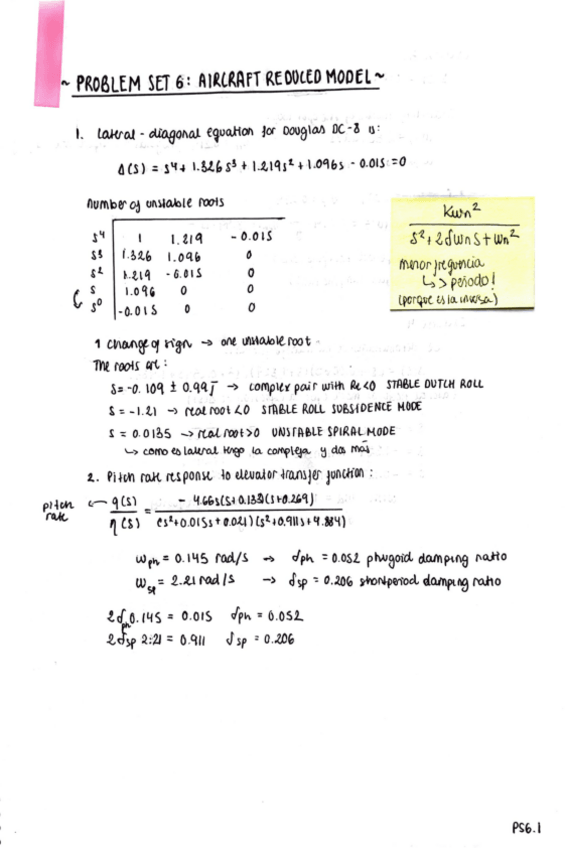 ~ PROBLEM SET 6: AIRCRAFT REDUCED MODEL ~
1. Lateral-diagonal equation for Douglas DC-8 is:
Δ(S) = S⁴ + 1.326 S³ + 1.219 S² + 1.096 S - 0.015 = 0
Number of unstable roots
S⁴ | 1 1.219 -0.015
S³ | 1.326 1.096 0
S² | 1.219 -0.015 0
S | 1.096 0 0
S⁰ | -0.015 0 0
Kωn²
S² + 2ζωnS + ωn²
menor frequencia
↳ > periodo!
(porque es la inversa)
1 change of sign → one unstable root
The roots are:
S = -0.109 ± 0.99j → complex pair with Re<0 STABLE DUTCH ROLL
S = -1.21 → real root <0 STABLE ROLL SUBSIDENCE MODE
S = 0.0135 → real root >0 UNSTABLE SPIRAL MODE
↳ como es lateral tengo la compleja y dos más
2. Pitch rate response to elevator transfer function:
pitch rate ← q(S) / η(S) = - 4.66S(S+0.133)(S+0.269) / (S²+0.015S+0.021)(S²+0.911S+4.884)
ωph = 0.145 rad/s → ζph = 0.052 phugoid damping ratio
ωsp = 2.21 rad/s → ζsp = 0.206 short period damping ratio
2ζph 0.145 = 0.015 ζph = 0.052
2ζsp 2.21 = 0.911 ζsp = 0.206
PS6.1